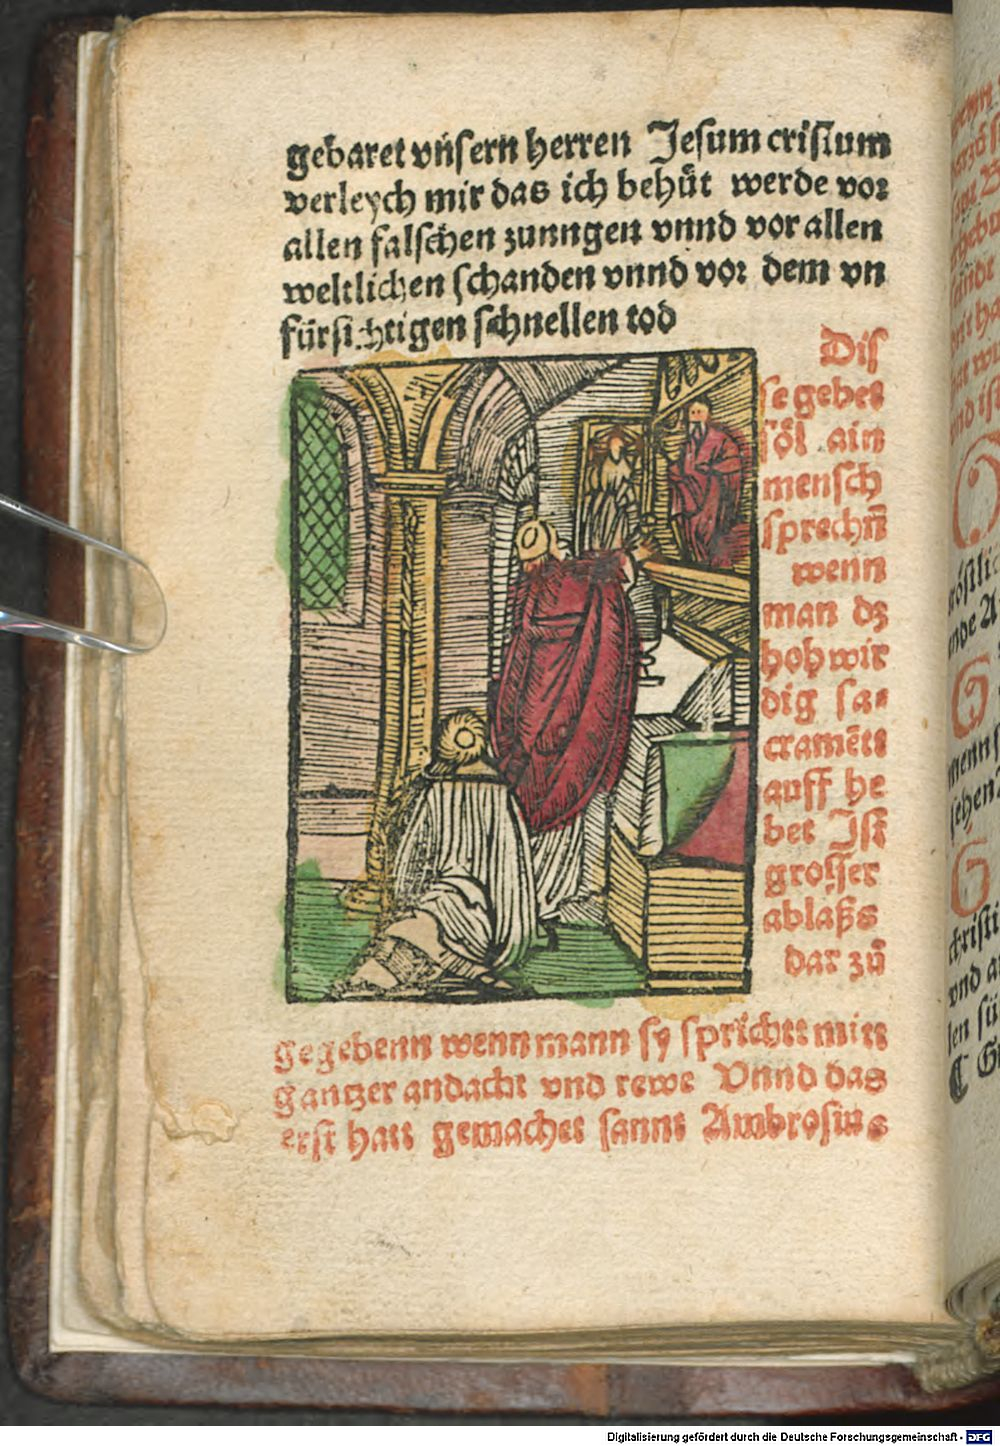 gebaret vnsern herren Jesum cristum
verleych mir das ich behüt werde vor
allen falschen zunngen vnnd vor allen
weltlichen schanden vnnd vor dem vn
fürsichtigen schnellen tod
Dis
se gebet
söl ain
mensch
sprechn̄
wenn
man dz
hohwir
dig sa-
cramētt
auff he
bet Jst
grosser
ablaßs
dar zů
gegebenn wenn mann sy sprichtt mitt
gantzer andacht vnd rewe Vnnd das
erst hatt gemachet sannt Ambrosius
Digitalisierung gefördert durch die Deutsche Forschungsgemeinschaft - DFG